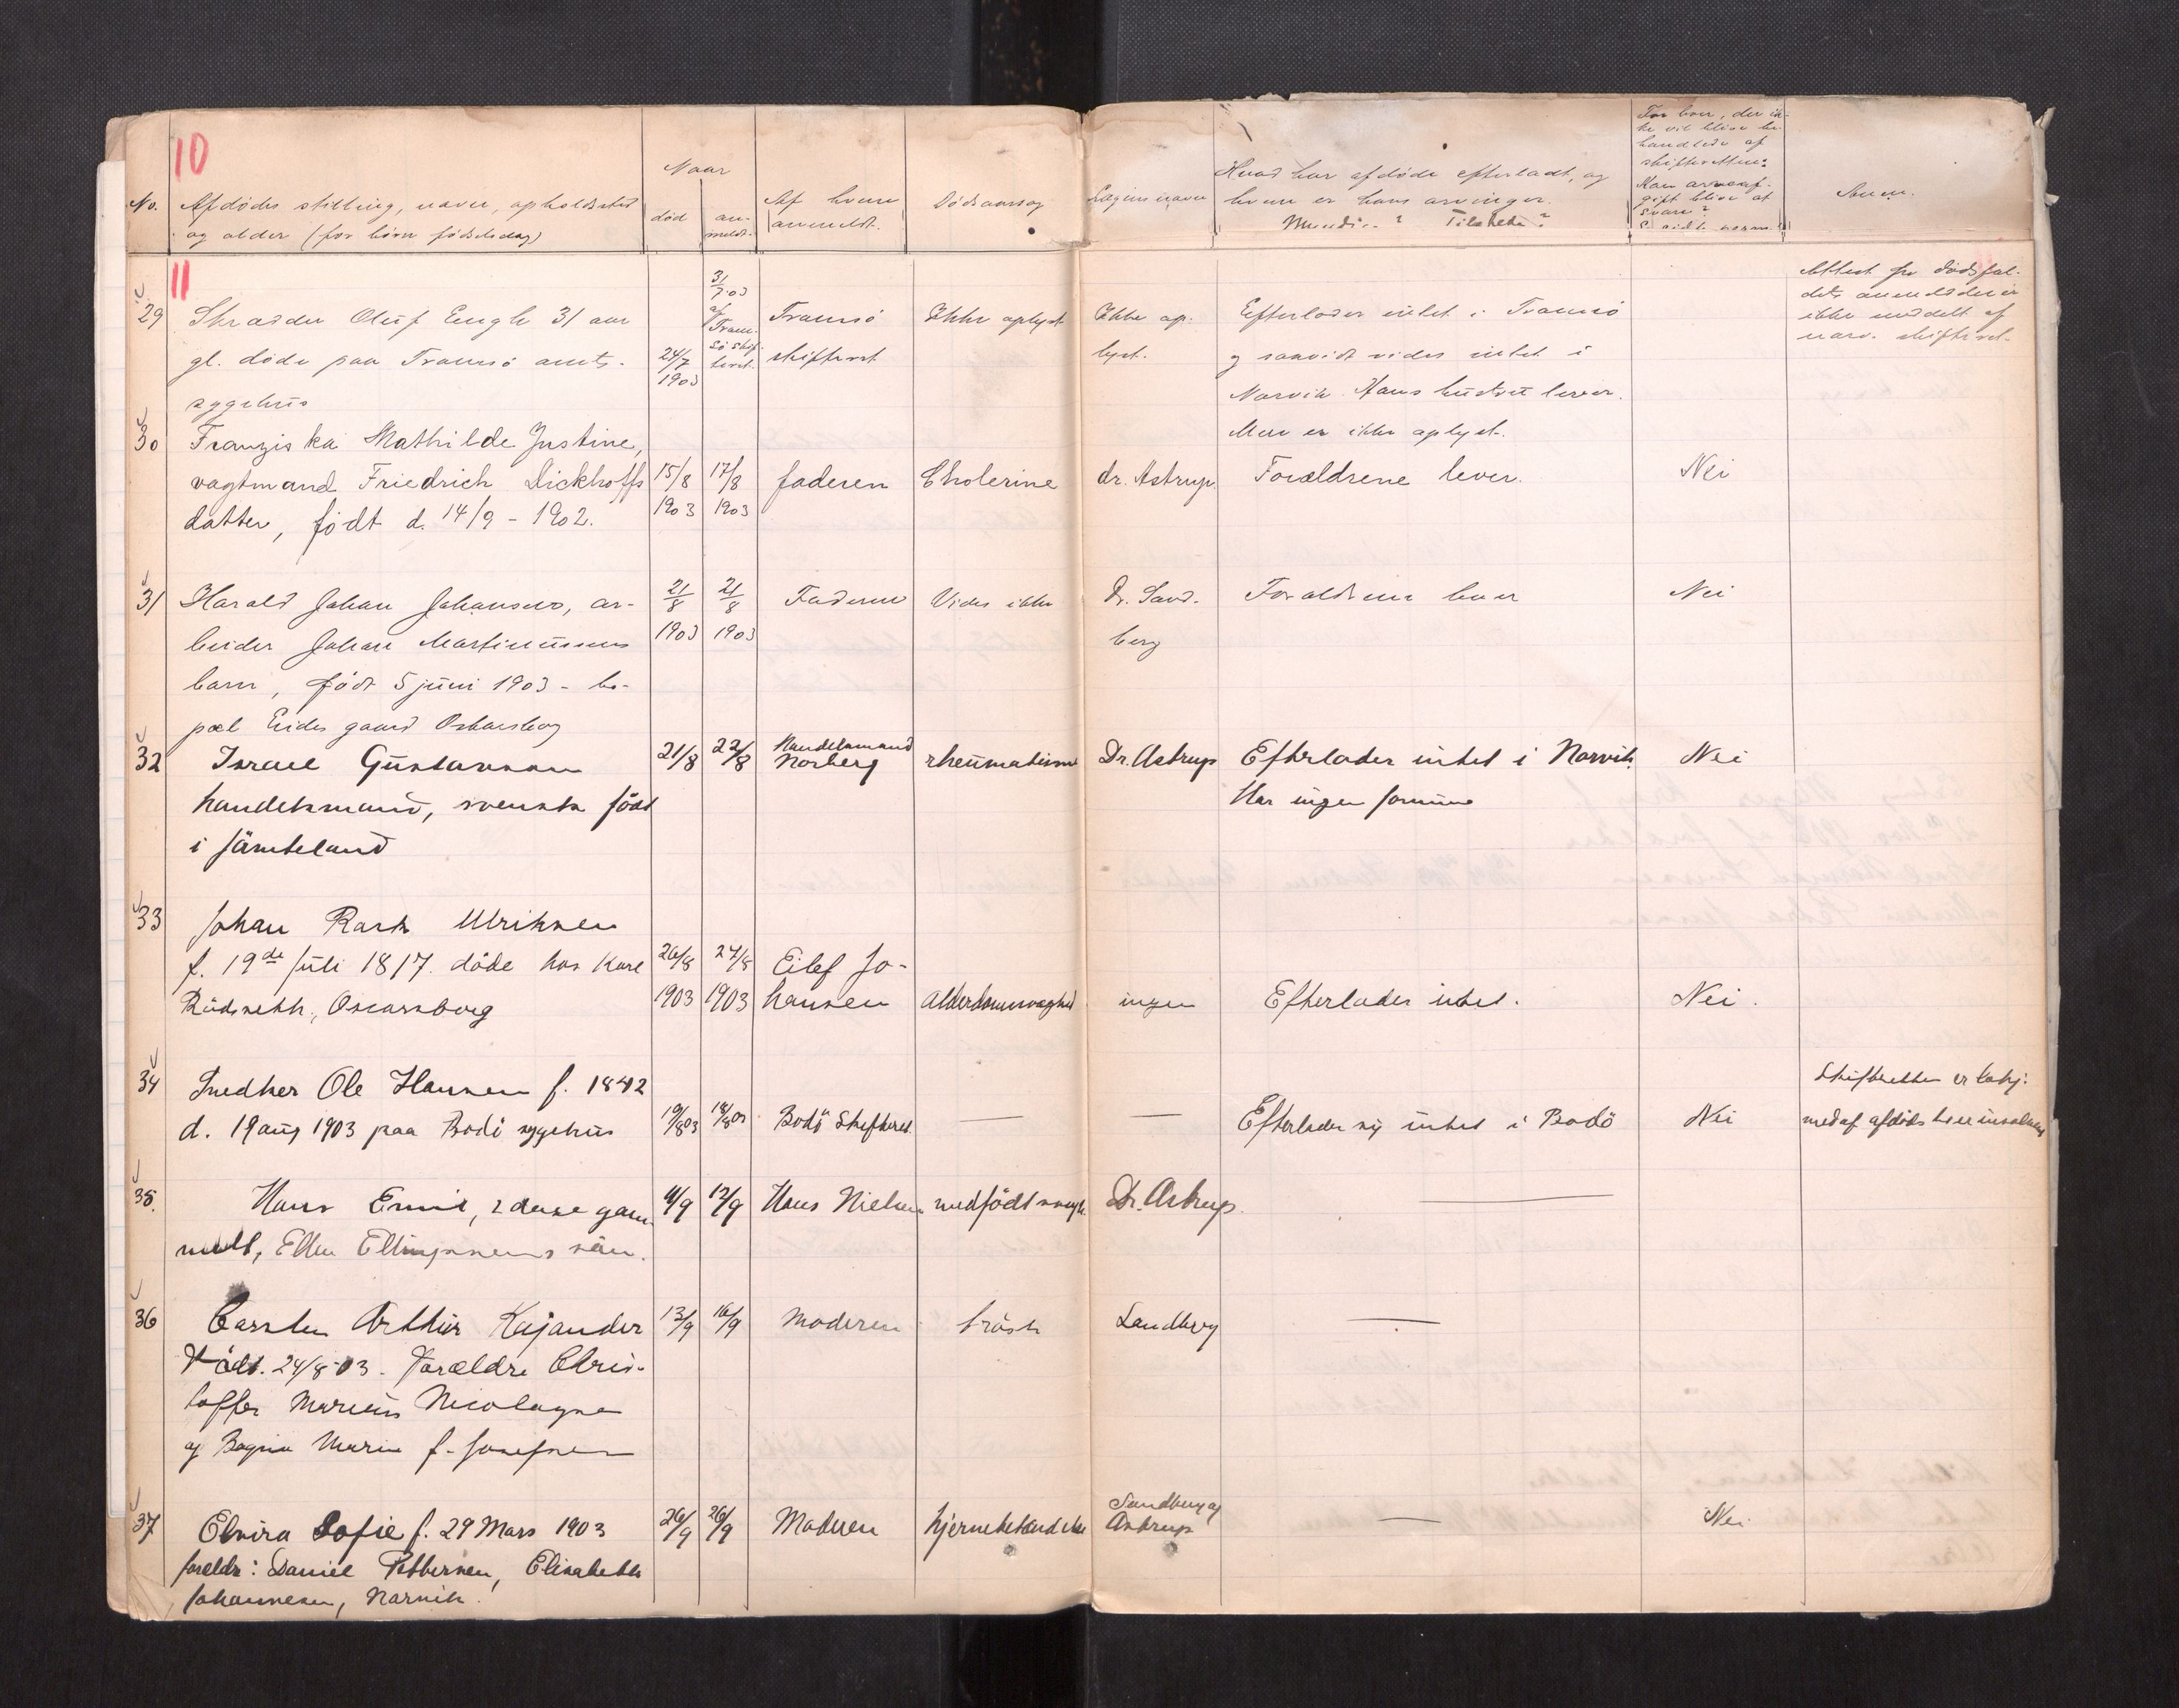 10
No.
Afdødes stilling, navn, opholdssted
og alder (for børn fødselsdag)
Naar
død
an-
meldt.
Af hvem
anmeldt.
Dødsaarsag
Lægens navn
Hvad har afdøde efterladt, og
hvem er hans arvinger.
Myndig? Tilstede?
For boer, der ik-
ke vil blive be-
handlede af
skifteretten:
Kan arveaf-
gift blive at
svare?
Anm.
11
29
Skrædder Oluf Engh 31 aar
gl. døde paa Tromsø amts-
sygehus
24/7
1903
3/7 03
af
Trom-
sø skif-
teret.
Tromsø
skifteret
Ikke oplyst
Ikke op-
lyst.
Efterlader intet i Tromsø
og saavidt vides intet i
Narvik. Hans hustru lever.
Mere er ikke oplyst.
Attest for dødsfal-
dets anmeldelse er
ikke meddelt af
narv. skifteret.
30
Franziska Mathilde Justine,
vagtmand Friedrich Dickhoffs
datter, født d. 14/9 - 1902.
15/8
1903
17/8
1903
faderen
Cholerine
dr. Astrup.
Forældrene lever.
Nei
31
Harald Johan Johansen, ar-
beider Johan Martinussens
barn, født 5 juni 1903 - bo-
pæl Eides gaard Oskarsborg
21/8
1903
21/8
1903
Faderen
Vides ikke
Dr. Sand-
berg
Forældrene lever
Nei
32
Israel Gustavson
handelsmand, svensk født
i Jämteland
21/8
22/8
Handelsmand
Norberg
rheumatisme
Dr. Astrup
Efterlader intet i Narvik.
Har ingen formue
Nei
33
Johan Rask Ulriksen
f. 19de Juli 1817. døde hos Karl
Rudsneth, Oscarsborg
26/8
1903
27/8
1903
Eilef Jo-
hansen
Alderdomssvaghed
ingen
Efterlader intet.
Nei.
34
Snedker Ole Hansen f. 1842
d. 19 aug 1903 paa Bodö sygehus
19/8 03
18/8 03
Bodö Skifteret.
—
—
Efterlader sig intet i Bodö
Nei
Skifteretten er bekj.
med af afdödes bo er insolvent
35.
Hans Emil, 2 dage gam-
melt, Ellen Ellingsens sön.
11/9
12/9
Hans Nielsen
medfödt svagh.
Dr. Astrup.
—
36
Carsten Arthur Kajander
Född. 24/8 03. Forældre Chris-
toffer Marius Nicolaysen
og Bagna Marie f. Josefsen
13/9
16/9
Moderen
tröske
Sandberg
—
37
Elvira Sofie f. 29 Mars 1903
foreldr: Daniel Pettersen, Elisabeth
Johannesen, Narvik.
26/9
26/9
Moderen
hjernebetændelse
Sandberg og
Astrup
—
Nei